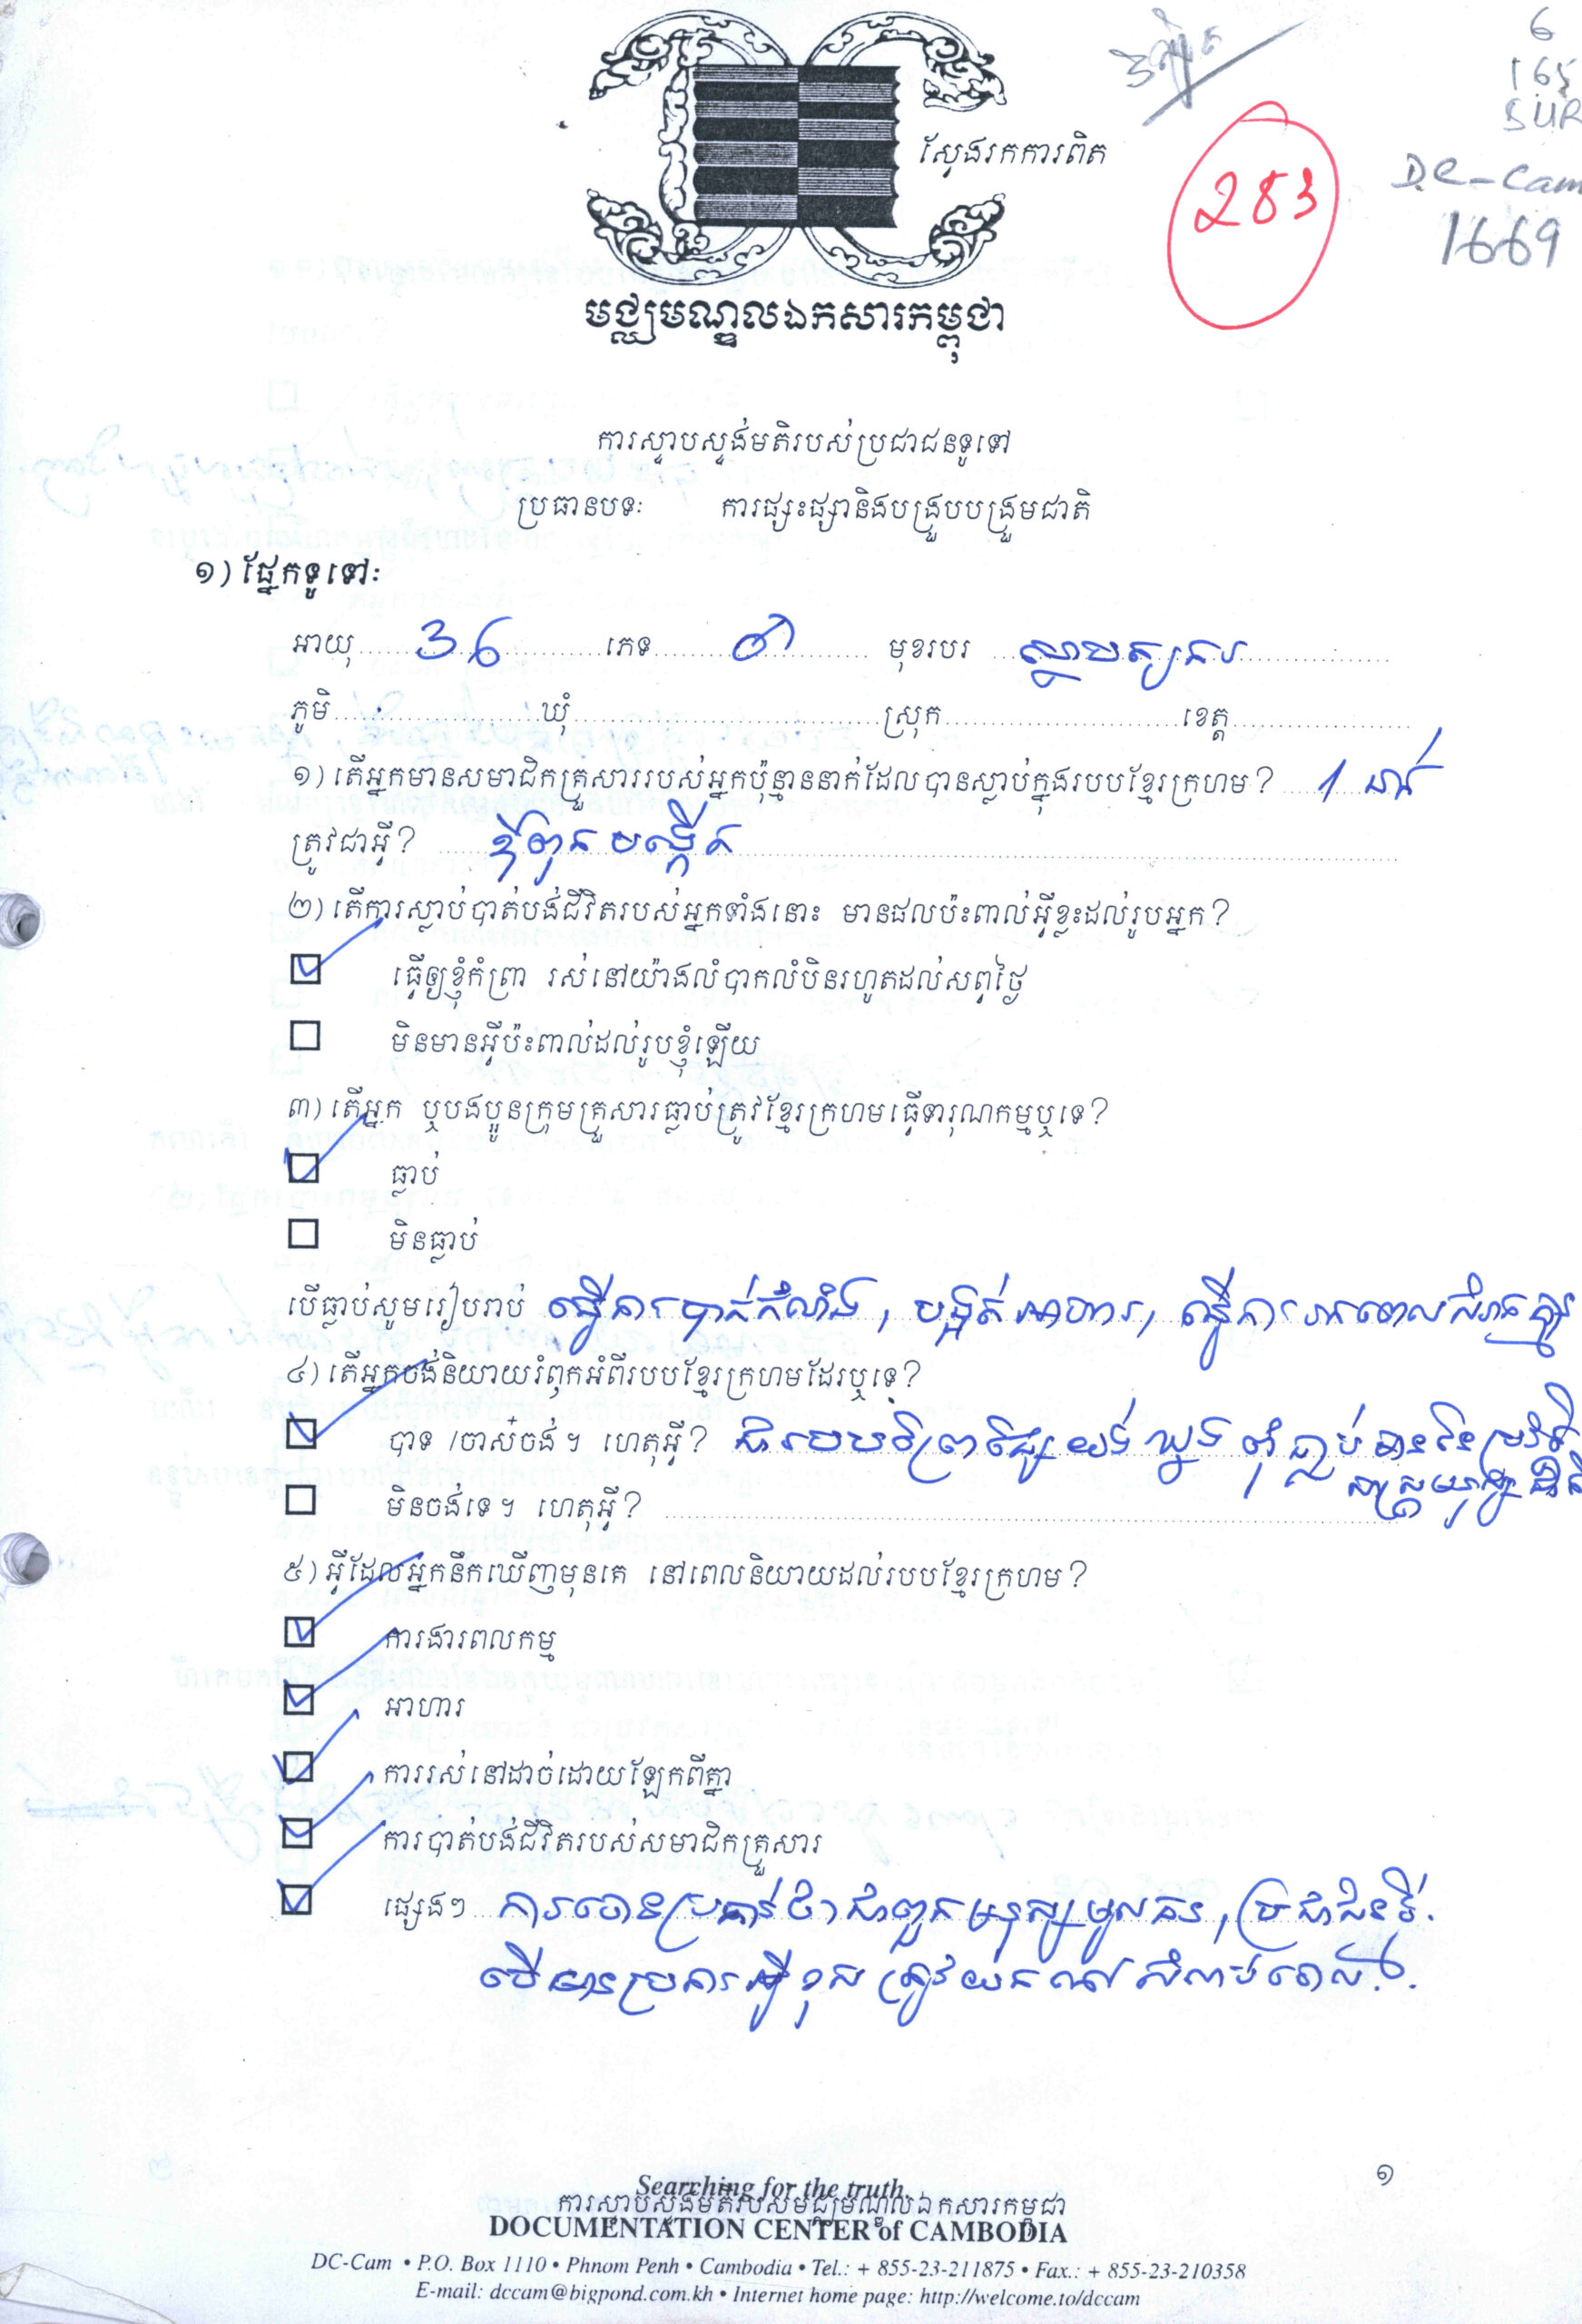 6
165
SUR
DC-Cam
1669
283
ស្វែងរកការពិត
មជ្ឈមណ្ឌលឯកសារកម្ពុជា
ការស្ទាបស្ទង់មតិរបស់ប្រជាជនទូទៅ
ប្រធានបទ: ការផ្សះផ្សានិងបង្រួបបង្រួមជាតិ
១) ផ្នែកទូទៅ:
អាយុ 36 ភេទ មុខរបរ ស្ថាបត្យករ
ភូមិ ឃុំ ស្រុក ខេត្ត
១) តើអ្នកមានសមាជិកគ្រួសាររបស់អ្នកប៉ុន្មាននាក់ដែលបានស្លាប់ក្នុងរបបខ្មែរក្រហម? 1 នាក់
ត្រូវជាអ្វី? ឪពុកបង្កើត
២) តើការស្លាប់បាត់បង់ជីវិតរបស់អ្នកទាំងនោះ មានផលប៉ះពាល់អ្វីខ្លះដល់រូបអ្នក?
ធ្វើឲ្យខ្ញុំកំព្រា រស់នៅយ៉ាងលំបាកលំបិនរហូតដល់សព្វថ្ងៃ
មិនមានអ្វីប៉ះពាល់ដល់រូបខ្ញុំឡើយ
៣) តើអ្នក ឬបងប្អូនក្រុមគ្រួសារធ្លាប់ត្រូវខ្មែរក្រហមធ្វើទារុណកម្មឬទេ?
ធ្លាប់
មិនធ្លាប់
បើធ្លាប់សូមរៀបរាប់ ធ្វើការបាក់កំលាំង, បង្អត់អាហារ, ធ្វើការអត់ពេលសំរាក
៤) តើអ្នកចង់និយាយរំឭកអំពីរបបខ្មែរក្រហមដែរឬទេ?
បាទ /ចាស៎ចង់។ ហេតុអ្វី? ជារបបព្រៃផ្សៃ យង់ឃ្នង ពុំធ្លាប់មានក្នុងប្រវត្តិ
សាស្ត្រ
មិនចង់ទេ។ ហេតុអ្វី?
៥) អ្វីដែលអ្នកនឹកឃើញមុនគេ នៅពេលនិយាយដល់របបខ្មែរក្រហម?
ការងារពលកម្ម
អាហារ
ការរស់នៅដាច់ដោយឡែកពីគ្នា
ការបាត់បង់ជីវិតរបស់សមាជិកគ្រួសារ
ផ្សេងៗ ការចោទប្រកាន់ថាជាពួកមនុស្សមូលធន, ប្រជាជនថ្មី.
បើមានប្រការអ្វីខុស ត្រូវយកទៅសំលាប់ចោល.
១
Searching for the truth.
ការស្ទាបស្ទង់មតិរបស់មជ្ឈមណ្ឌលឯកសារកម្ពុជា
DOCUMENTATION CENTER of CAMBODIA
DC-Cam • P.O. Box 1110 • Phnom Penh • Cambodia • Tel.: + 855-23-211875 • Fax.: + 855-23-210358
E-mail: dccam@bigpond.com.kh • Internet home page: http://welcome.to/dccam